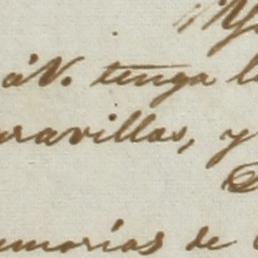 á V. tenga l
ravillas, y
emorias de